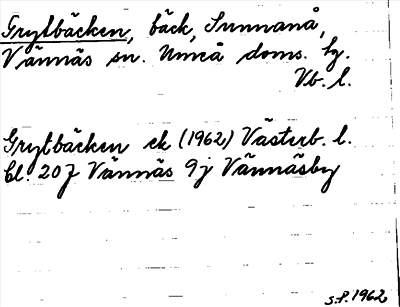 Grytbäcken, bäck, Sunnanå,
Vännäs sn. Umeå doms. hg.
Vb. l.
Grytbäcken ek (1962) Västerb. l.
bl. 20 J Vännäs 9j Vännäsby
S.P. 1962